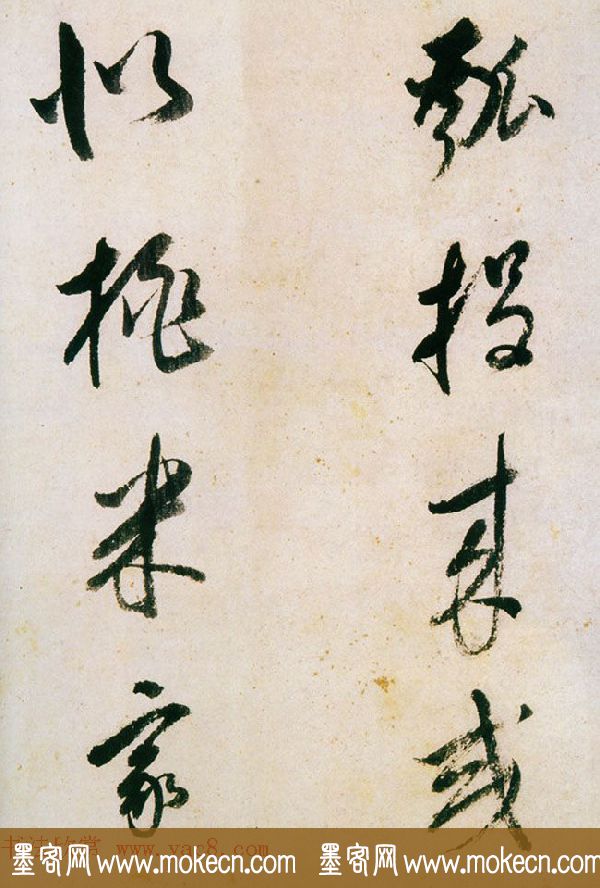 投来或
似桃米家
书法欣赏 www.yac8.com
墨客网 www.mokecn.com 墨客网 www.mokecn.com